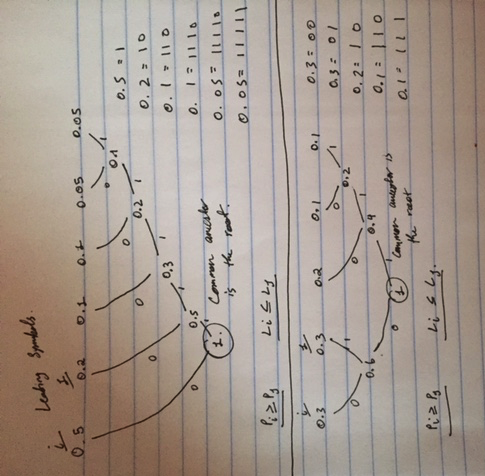 Leading Symbols
i j
0.5 0.2 0.1 0.1 0.05 0.05
0 1
0.1
0 1
0.2
0 1
0.3
0 1
0.5
0 1
1.
Common ancestor
is the root.
0.5 = 1
0.2 = 10
0.1 = 110
0.1 = 1110
0.05 = 11110
0.05 = 11111
Pi ≥ Pj Li ≤ Lj
i j
0.3 0.3 0.2 0.1 0.1
0 1
0.2
0 1 0 1
0.6 0.4
0 1
1
Common ancestor is
the root
0.3 = 00
0.3 = 01
0.2 = 10
0.1 = 110
0.1 = 111
Pi ≥ Pj Li ≤ Lj.